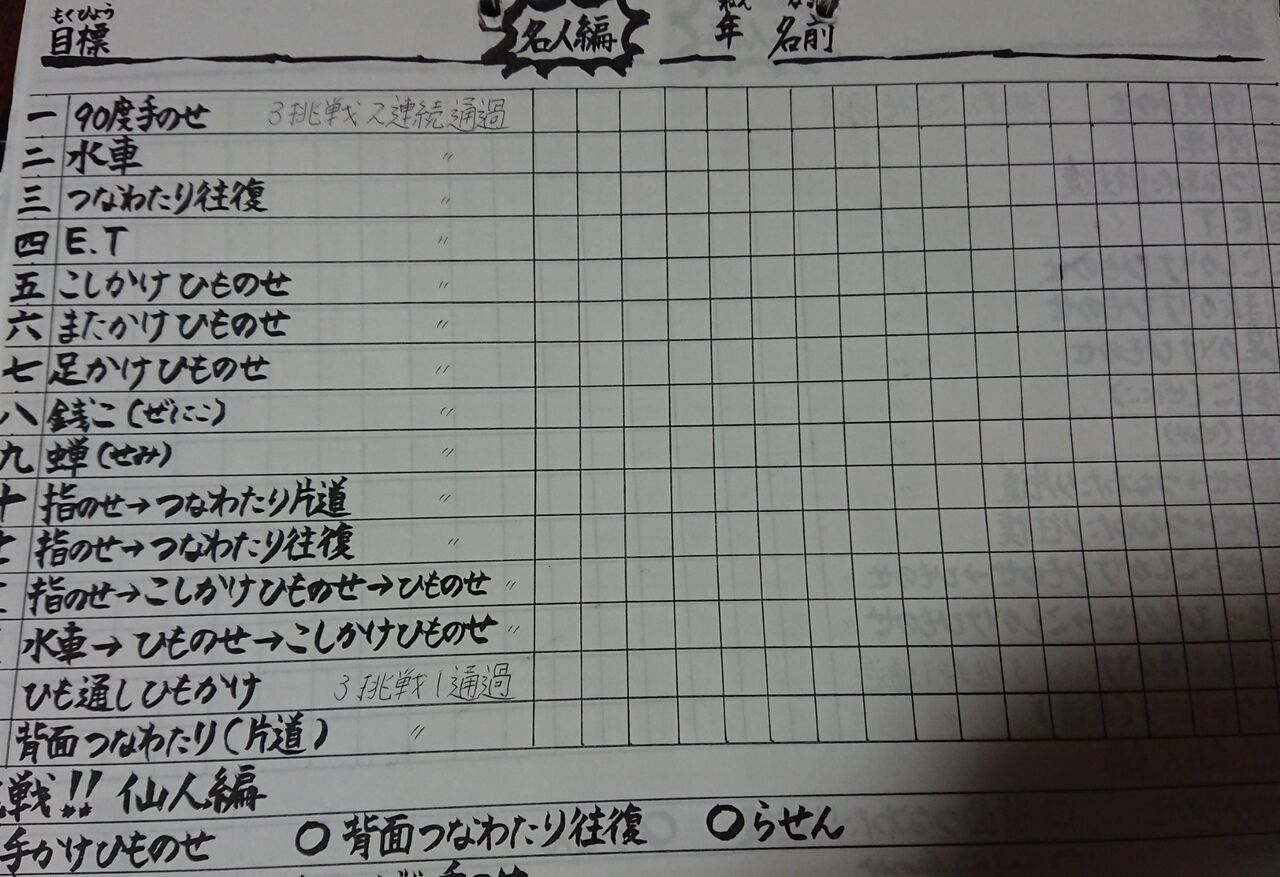 もくひょう
目標
名人編
年 名前
一 90度手のせ 3挑戦2連続通過
二 水車 〃
三 つなわたり往復 〃
四 E.T 〃
五 こしかけひものせ 〃
六 またかけひものせ 〃
七 足かけひものせ 〃
八 銭こ(ぜにこ) 〃
九 蝉(せみ) 〃
十 指のせ→つなわたり片道 〃
指のせ→つなわたり往復 〃
指のせ→こしかけひものせ→ひものせ 〃
水車→ひものせ→こしかけひものせ 〃
ひも通しひもかけ 3挑戦1通過
背面つなわたり(片道) 〃
戦!! 仙人編
手かけひものせ ○背面つなわたり往復 ○らせん